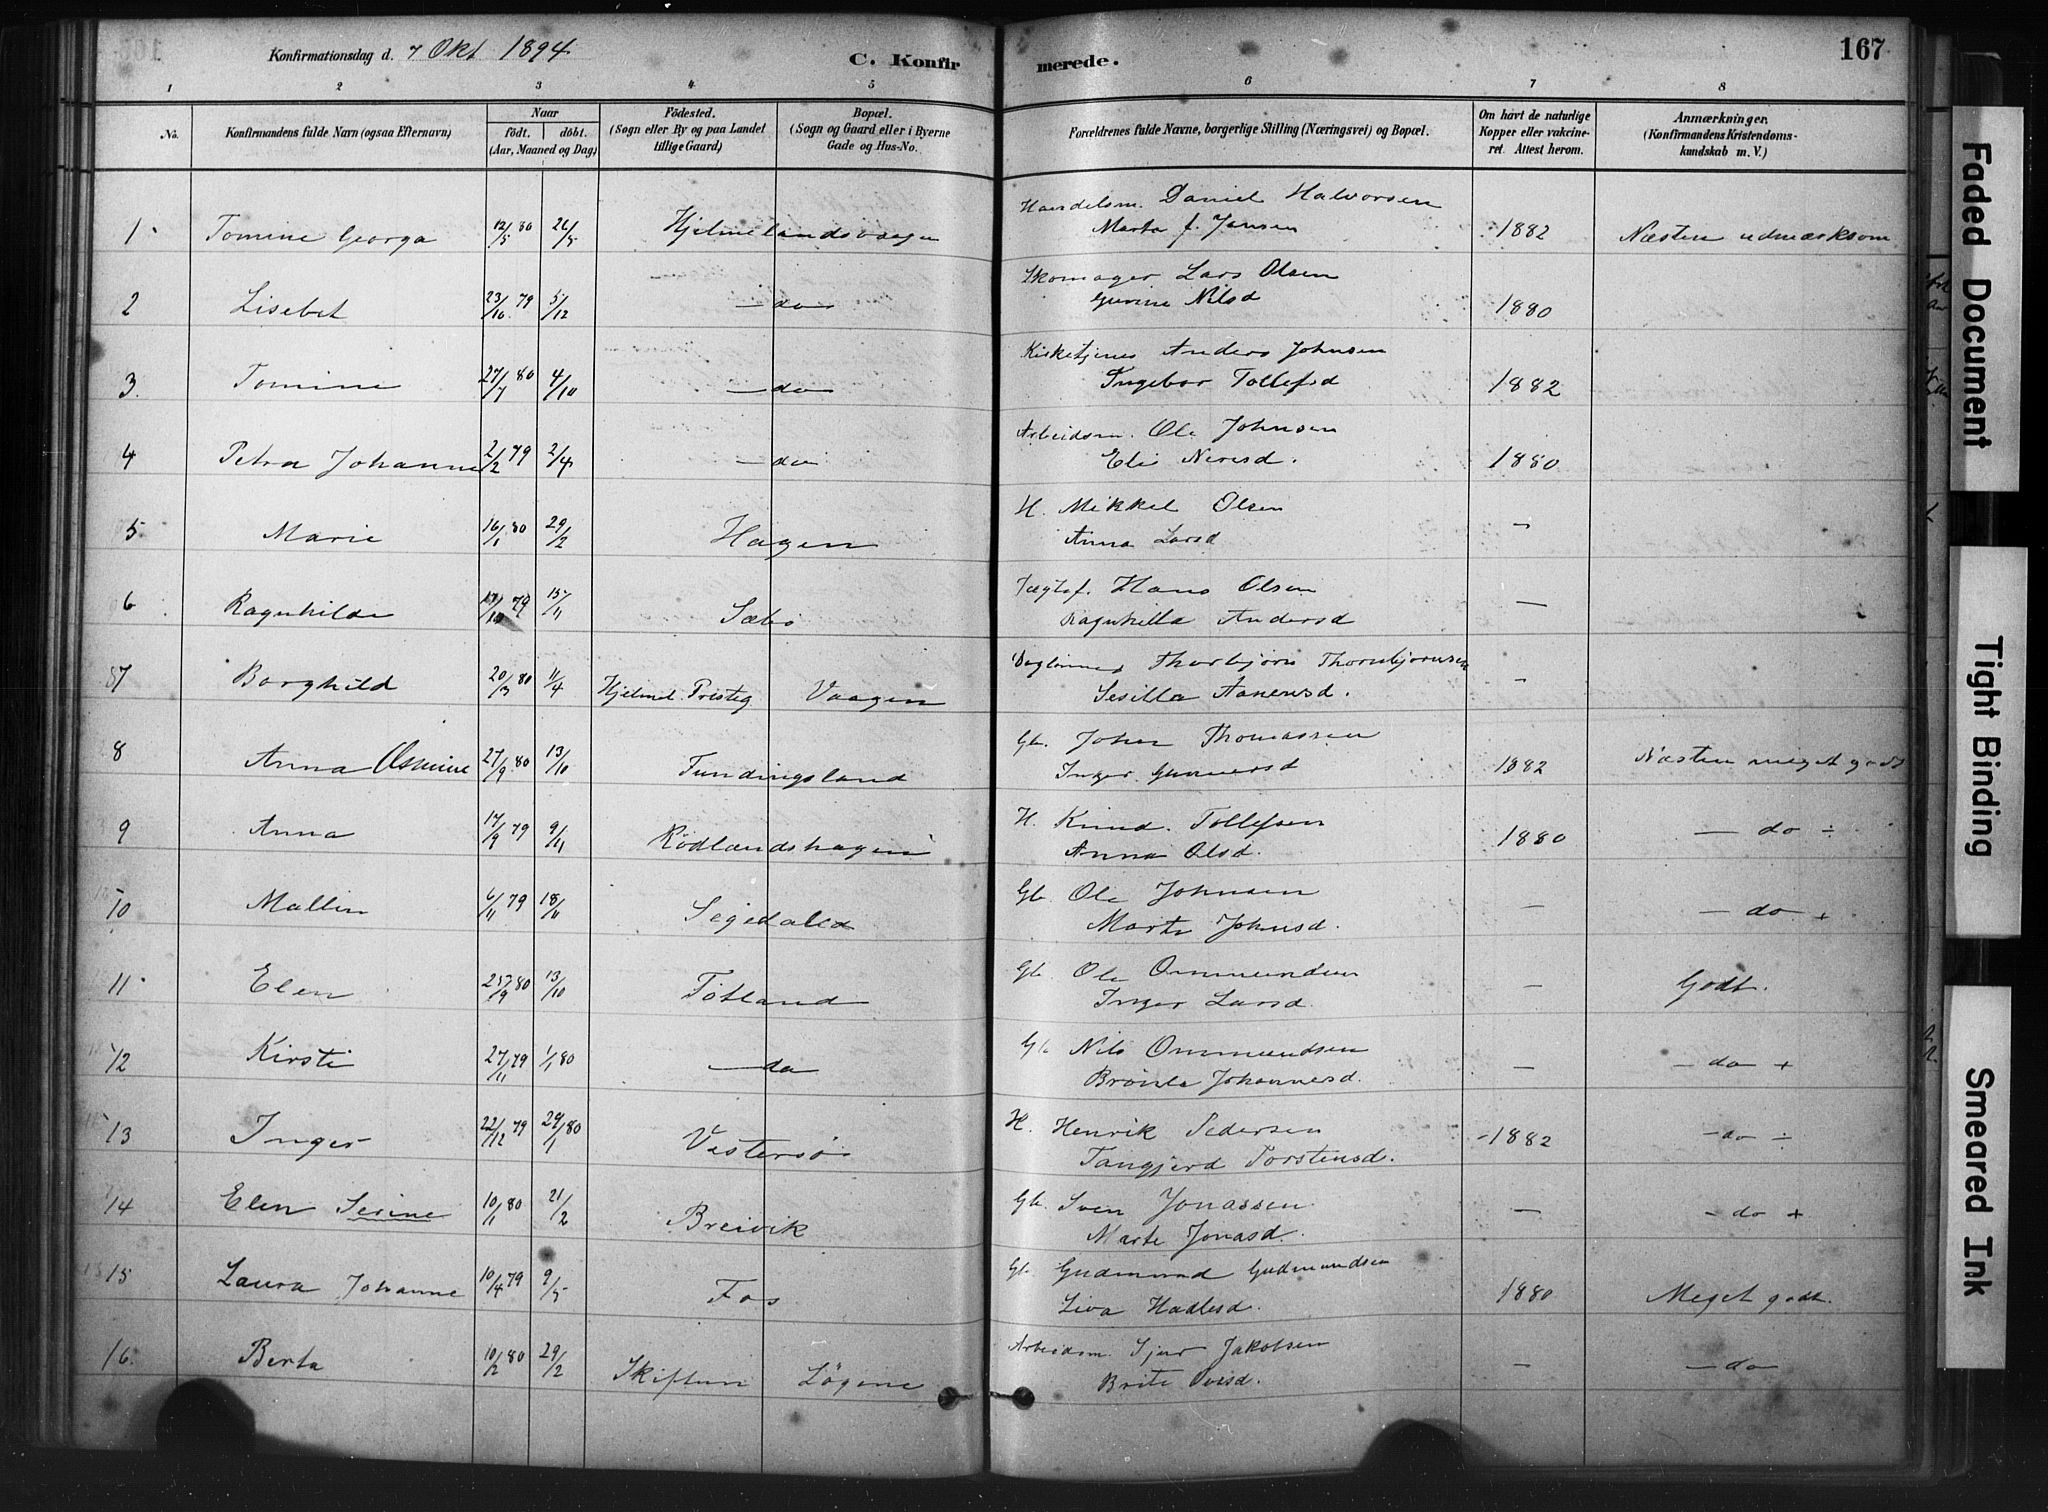 Konfirmationsdag d. 7 Okt 1894
C. Konfirmerede.
167
1 2 3 4 5 6 7 8
No.
Konfirmandens fulde Navn (ogsaa Efternavn)
Naar
födt. döbt.
(Aar, Maaned og Dag)
Födested.
(Sogn eller By og paa Landet
tillige Gaard)
Bopæl.
(Sogn og Gaard eller i Byerne
Gade og Hus-No.
Forældrenes fulde Navne, borgerlige Stilling (Næringsvei) og Bopæl.
Om havt de naturlige
Kopper eller vakcine-
ret. Attest herom.
Anmærkninger.
(Konfirmandens Kristendoms-
kundskab m. V.)
1 Tomine Georga 12/5 80 26/5 Hjelmelandsvaagen Handelsm. Daniel Halvorsen
Marta f. Jansen 1882 Næsten udmærksom
2 Lisebet 23/10 79 5/12 — do Skomager Lars Olsen
Gurine Nilsd 1880
3. Tomine 27/7 80 4/10 — do Kirketjener Anders Johnsen
Ingebor Tollefsd 1882
4 Petra Johanne 2/2 79 2/4 — do Arbeidsm. Ole Johnsen
Eli 1880
5 Marie 16/1 80 29/2 Hagen H. Mikkel Olsen
Anna Larsd —
6 Ragnhilde 79 15/11 Sæbö Jægtef. Hans Olsen
Ragnhilla Andersd —
7 Borghild 20/3 80 11/4 Hjelmel. Prsteg Vaagen Daglönner Thorbjörn Thornbjörnsen
Sesilla Aanensd. —
8 Anna Osmine 27/9 80 13/10 Fundingsland Gb. Johan Thomassen
Inger Gunnersd 1882 Næsten meget godt
9 Anna 17/9 79 9/11 Rödlandshagen H. Knud Tollefsen
Anna Olsd. 1880 — do ÷
10 Mallin 6/11 79 18/11 Segedaled Gb. Ole Johnsen
Marta Johnsd. — — do +
11 Elen 25/9 80 13/10 Tötland Gb. Ole Ommundsen
Inger Larsd — Godt.
12 Kirsti 27/11 79 1/1 80 — do Gb Nils Ommundsen
Brönla Johannesd. — — do +
13 Inger 22/12 79 24/1 80 Vestersö H. Henrik Pedersen
Tangjerd Torstensd. - 1882 — do ÷
14 Elen Serine 10/1 80 21/2 Breivik Gb. Sven Jonassen
Marte Jonasd. — - do +
15 Laura Johanne 10/4 79 9/5 Fos Gb. Gudmund Gudmundsen
Liva Hadlesd. 1880 Meget godt.
16. Berta 10/2 80 29/2 Skiftun Lögene Arbeidsm. Sjur Jakobsen
Brite — — do
Faded Document
Tight Binding
Smeared Ink